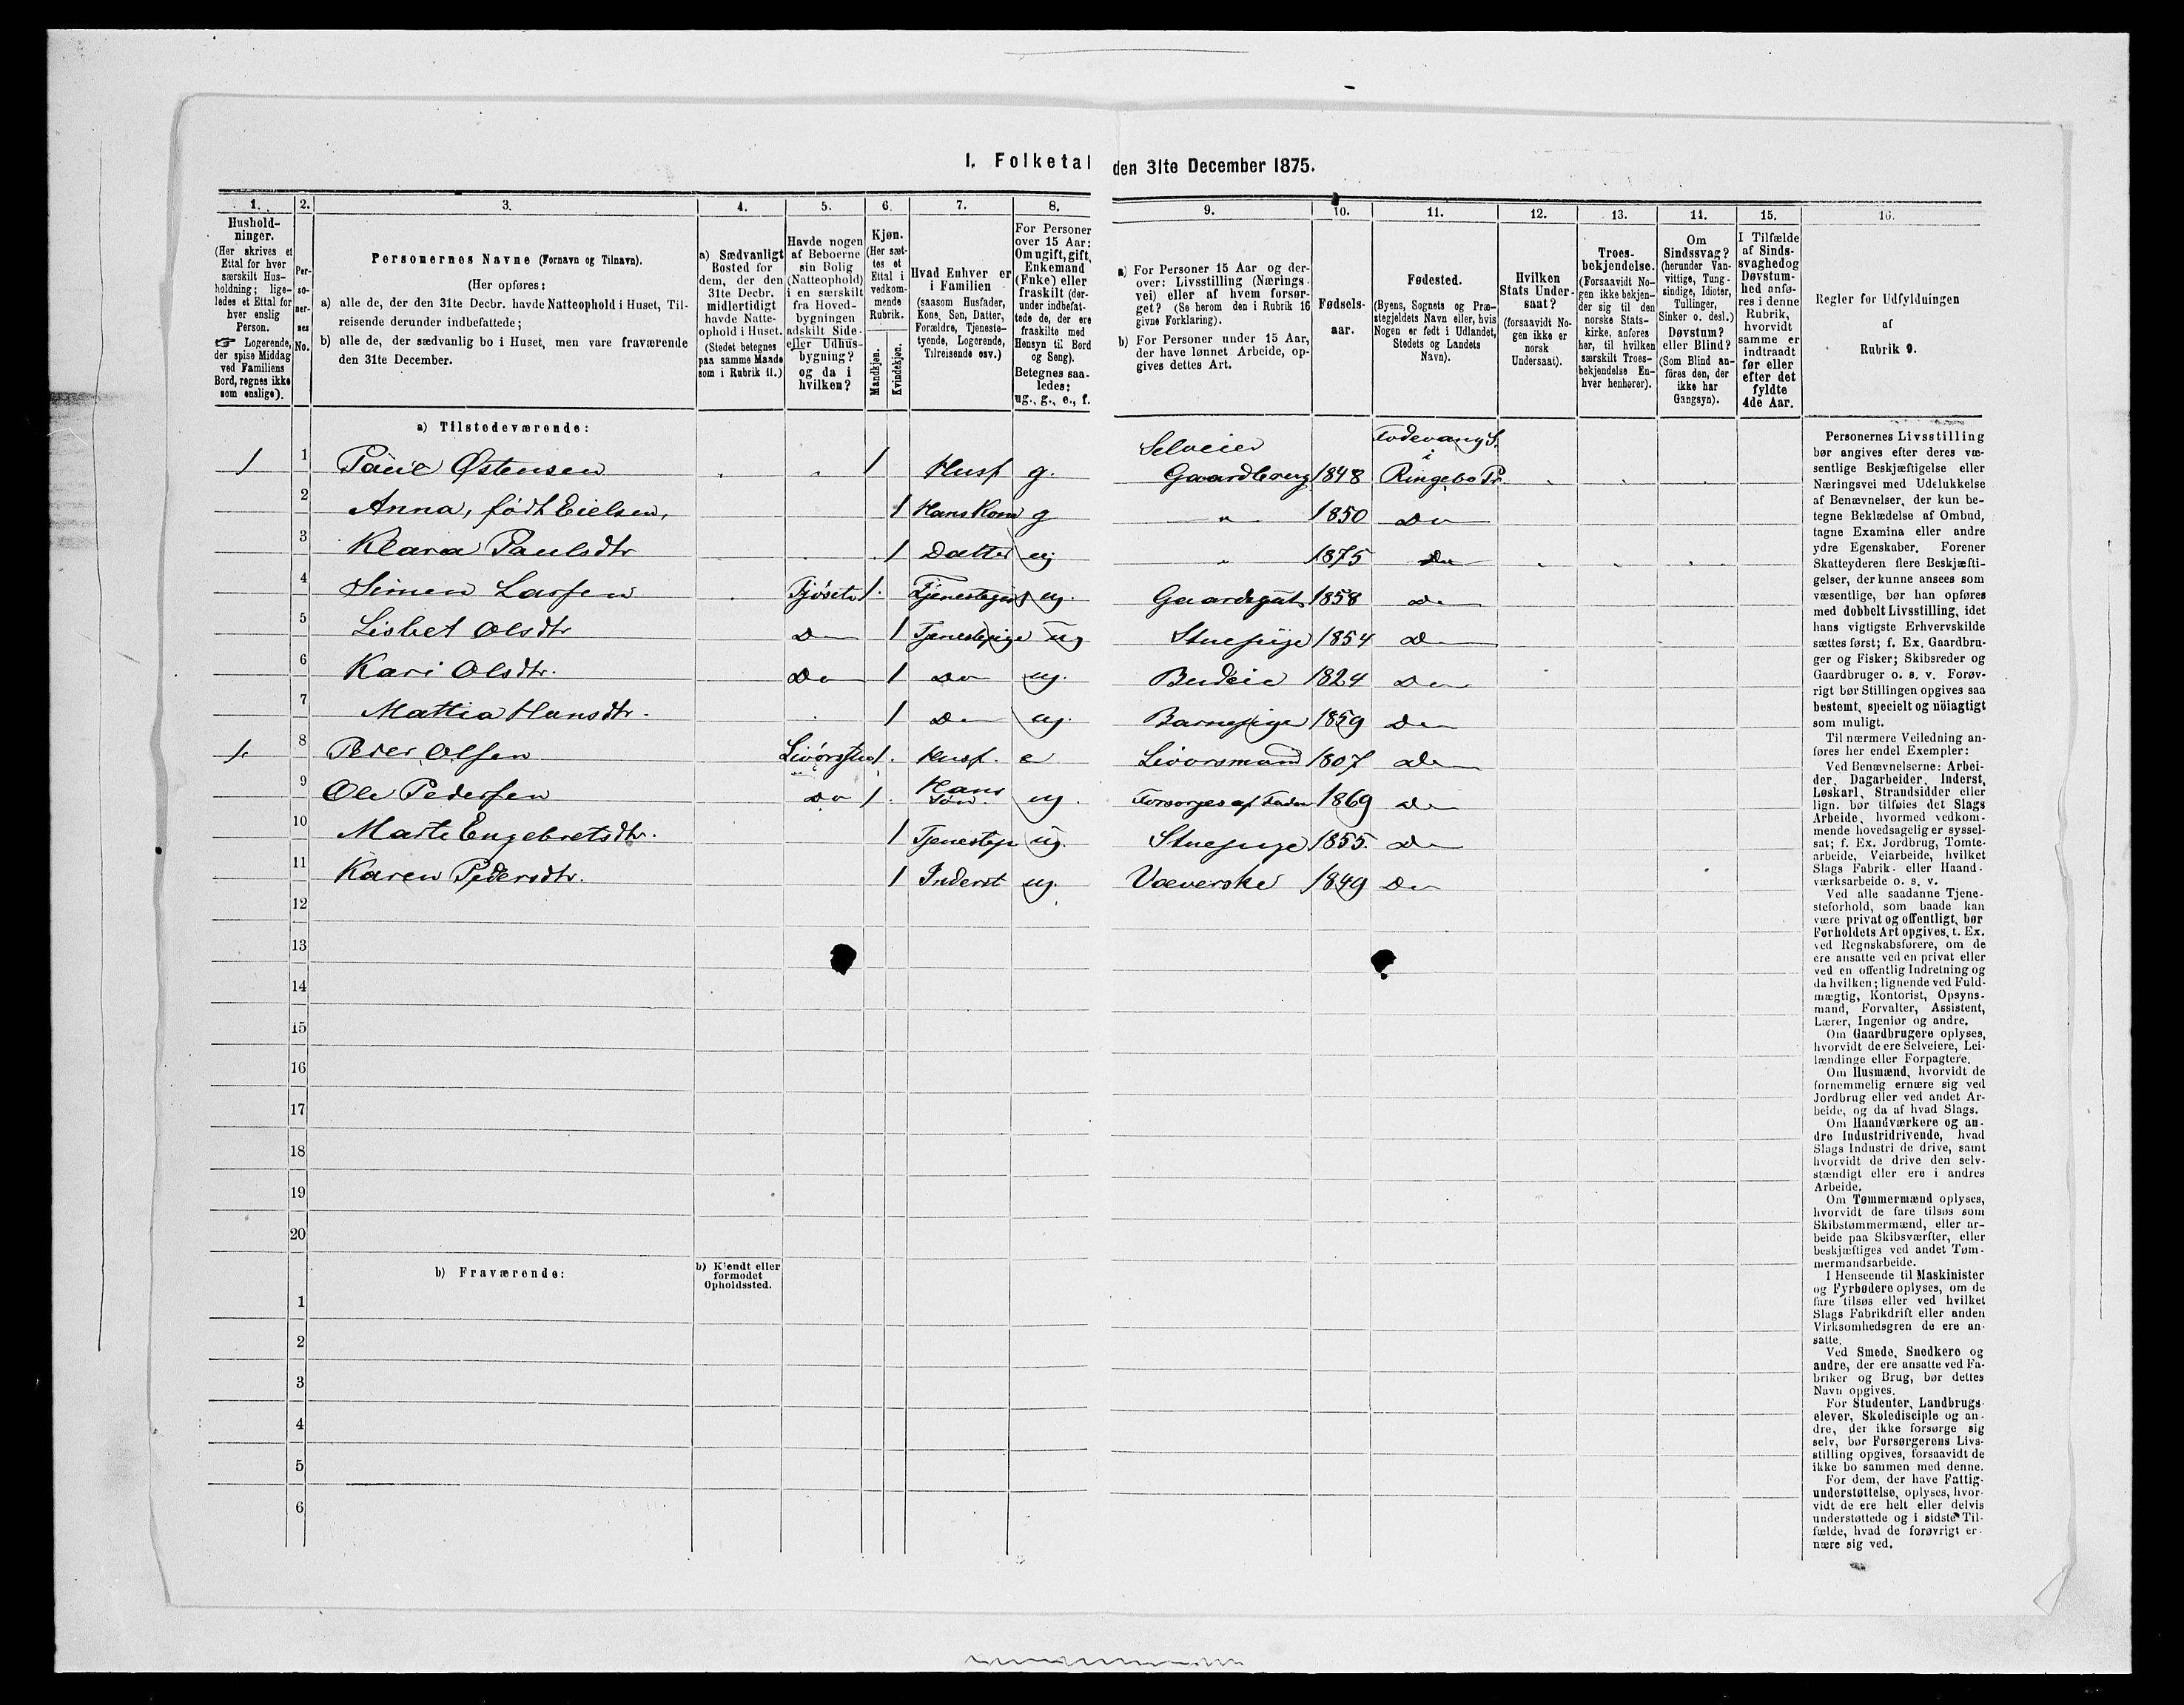 I. Folketal den 31te December 1875.
1. 2. 3. 4. 5. 6. 7. 8. 9. 10. 11. 12. 13. 14. 15. 16.
Hushold-
ninger.
(Her skrives et
Ettal for hver
særskilt Hus-
holdning; lige-
ledes et Ettal for
hver enslig
Person.
☞ Logerende,
der spise Middag
ved Familiens
Bord, regnes ikke
som enslige).
Per-
so-
ner-
nes
No.
Personernes Navne (Fornavn og Tilnavn).
(Her opføres:
a) alle de, der den 31te Decbr. havde Natteophold i Huset, Til-
reisende derunder indbefattede;
b) alle de, der sædvanlig bo i Huset, men vare fraværende
den 31te December.
a) Sædvanligt
Bosted for
dem, der den
31te Decbr.
midlertidigt
havde Natte-
ophold i Huset.
(Stedet betegnes
paa samme Maade
som i Rubrik 11.)
Havde nogen
af Beboerne
sin Bolig
(Natteophold)
i en særskilt
fra Hoved-
bygningen
adskilt Side-
eller Udhus-
bygning?
og da i
hvilken?
Kjøn.
(Her sæt-
tes et
Ettal i
vedkom-
mende
Rubrik.
Mandkjøn.
Kvindekjøn.
Hvad Enhver er
i Familien
(saasom Husfader,
Kone, Søn, Datter,
Forældre, Tjeneste-
tyende, Logerende,
Tilreisende osv.)
For Personer
over 15 Aar:
Om ugift, gift,
Enkemand
(Enke) eller
fraskilt (der-
under indbefat-
tede de, der ere
fraskilte med
Hensyn til Bord
og Seng).
Betegnes saa-
ledes:
ug., g., e., f.
a) For Personer 15 Aar og der-
over: Livsstilling (Nærings-
vei) eller af hvem forsør-
get? (Se herom den i Rubrik 16
givne Forklaring).
b) For Personer under 15 Aar,
der have lønnet Arbeide, op-
gives dettes Art.
Fødsels-
aar.
Fødested.
(Byens, Sognets og Præ-
stegjeldets Navn eller, hvis
Nogen er født i Udlandet,
Stedets og Landets
Navn).
Hvilken
Stats Under-
saat?
(forsaavidt No-
gen ikke er
norsk
Undersaat).
Troes-
bekjendelse.
(Forsaavidt No-
gen ikke bekjen-
der sig til den
norske Stats-
kirke, anføres
her, til hvilken
særskilt Troes-
bekjendelse En-
hver henhører).
Om
Sindssvag?
(herunder Van-
vittige, Tung-
sindige, Idioter,
Tullinger,
Sinker o. desl.)
Døvstum?
eller Blind?
(Som Blind an-
føres den, der
ikke har
Gangsyn).
I Tilfælde
af Sinds-
svaghed og
Døvstum-
hed anfø-
res i denne
Rubrik,
hvorvidt
samme er
indtraadt
før eller
efter det
fyldte
4de Aar.
Regler for Udfyldningen
af
Rubrik 9.
a) Tilstedeværende:
Selveier Fodevang S. i
1 1 Paul Østensen 1 Husf g. Gaardbrug 1848 Ringebo Pr.
2 Anna, født Eielsen, 1 Hans Kone g " 1850 Do
3 Klara Paulsdtr 1 Datter ug " 1875 Do
4 Simen Larsen 1 ug. 1858 Do
5 Lisbet Olsdtr Do 1 Tjenestepige ug Stuepige 1854 Do
6 Kari Olsdtr. Do 1 Do ug. Budeie 1824 Do
7 Mattia Hansdtr. 1 Do ug. Barnepige 1859 Do
1. 8 Peder Olsen 1. Husf. e 1807 Do
9 Ole Pedersen Do 1. Hans Søn. ug. Forsørges af Fader 1869 Do
10 Marte Engebretsdtr. 1 Tjenestep ug. Stuepige 1855. Do
11 Karen Pedersdtr. 1 Inderst ug. Væverske 1849 Do
12
13
14
15
16
17
18
19
20
b) Fraværende:
b) Kjendt eller
formodet
Opholdssted.
1
2
3
4
5
6
Personernes Livsstilling
bør angives efter deres væ-
sentlige Beskjæftigelse eller
Næringsvei med Udelukkelse
af Benævnelser, der kun be-
tegne Beklædelse af Ombud,
tagne Examina eller andre
ydre Egenskaber. Forener
Skatteyderen flere Beskjæfti-
gelser, der kunne ansees som
væsentlige, bør han opføres
med dobbelt Livsstilling, idet
hans vigtigste Erhvervskilde
sættes først; f. Ex. Gaardbru-
ger og Fisker; Skibsreder og
Gaardbruger o. s. v. Forøv-
rigt bør Stillingen opgives saa
bestemt, specielt og nöiagtigt
som muligt.
Til nærmere Veiledning an-
føres her endel Exempler:
Ved Benævnelserne: Arbei-
der, Dagarbeider, Inderst,
Løskarl, Strandsidder eller
lign. bør tilføies det Slags
Arbeide, hvormed vedkom-
mende hovedsagelig er syssel-
sat; f. Ex. Jordbrug, Tomte-
arbeide, Veiarbeide, hvilket
Slags Fabrik- eller Haand-
værksarbeide o. s. v.
Ved alle saadanne Tjene-
steforhold, som baade kan
være privat og offentligt, bør
Forholdets Art opgives, t. Ex.
ved Regnskabsførere, om de
ere ansatte ved en privat eller
ved en offentlig Indretning og
da hvilken; lignende ved Fuld-
mægtig, Kontorist, Opsyns-
mand, Forvalter, Assistent,
Lærer, Ingeniør og andre.
Om Gaardbrugere oplyses,
hvorvidt de ere Selveiere, Lei-
lændinge eller Forpagtere.
Om Husmænd, hvorvidt de
fornemmelig ernære sig ved
Jordbrug eller ved andet Ar-
beide, og da af hvad Slags.
Om Haandværkere og an-
dre Industridrivende, hvad
Slags Industri de drive, samt
hvorvidt de drive den selv-
stændigt eller ere i andres
Arbeide.
Om Tømmermænd oplyses,
hvorvidt de fare tilsøs som
Skibstømmermænd, eller ar-
beide paa Skibsværfter, eller
beskjæftiges ved andet Tøm-
mermandsarbeide.
I Henseende til Maskinister
og Fyrbødere oplyses, om de
fare tilsøs eller ved hvilket
Slags Fabrikdrift eller anden
Virksomhedsgren de ere an-
satte.
Ved Smede, Snedkere og
andre, der ere ansatte ved Fa-
briker og Brug, bør dettes
Navn opgives.
For Studenter, Landbrugs-
elever, Skoledisciple og an-
dre, der ikke forsørge sig
selv, bør Forsørgerens Livs-
stilling opgives, forsaavidt de
ikke bo sammen med denne.
For dem, der have Fattig-
understøttelse, oplyses, hvor-
vidt de ere helt eller delvis
understøttede og i sidste Til-
fælde, hvad de forøvrigt er-
nære sig ved.